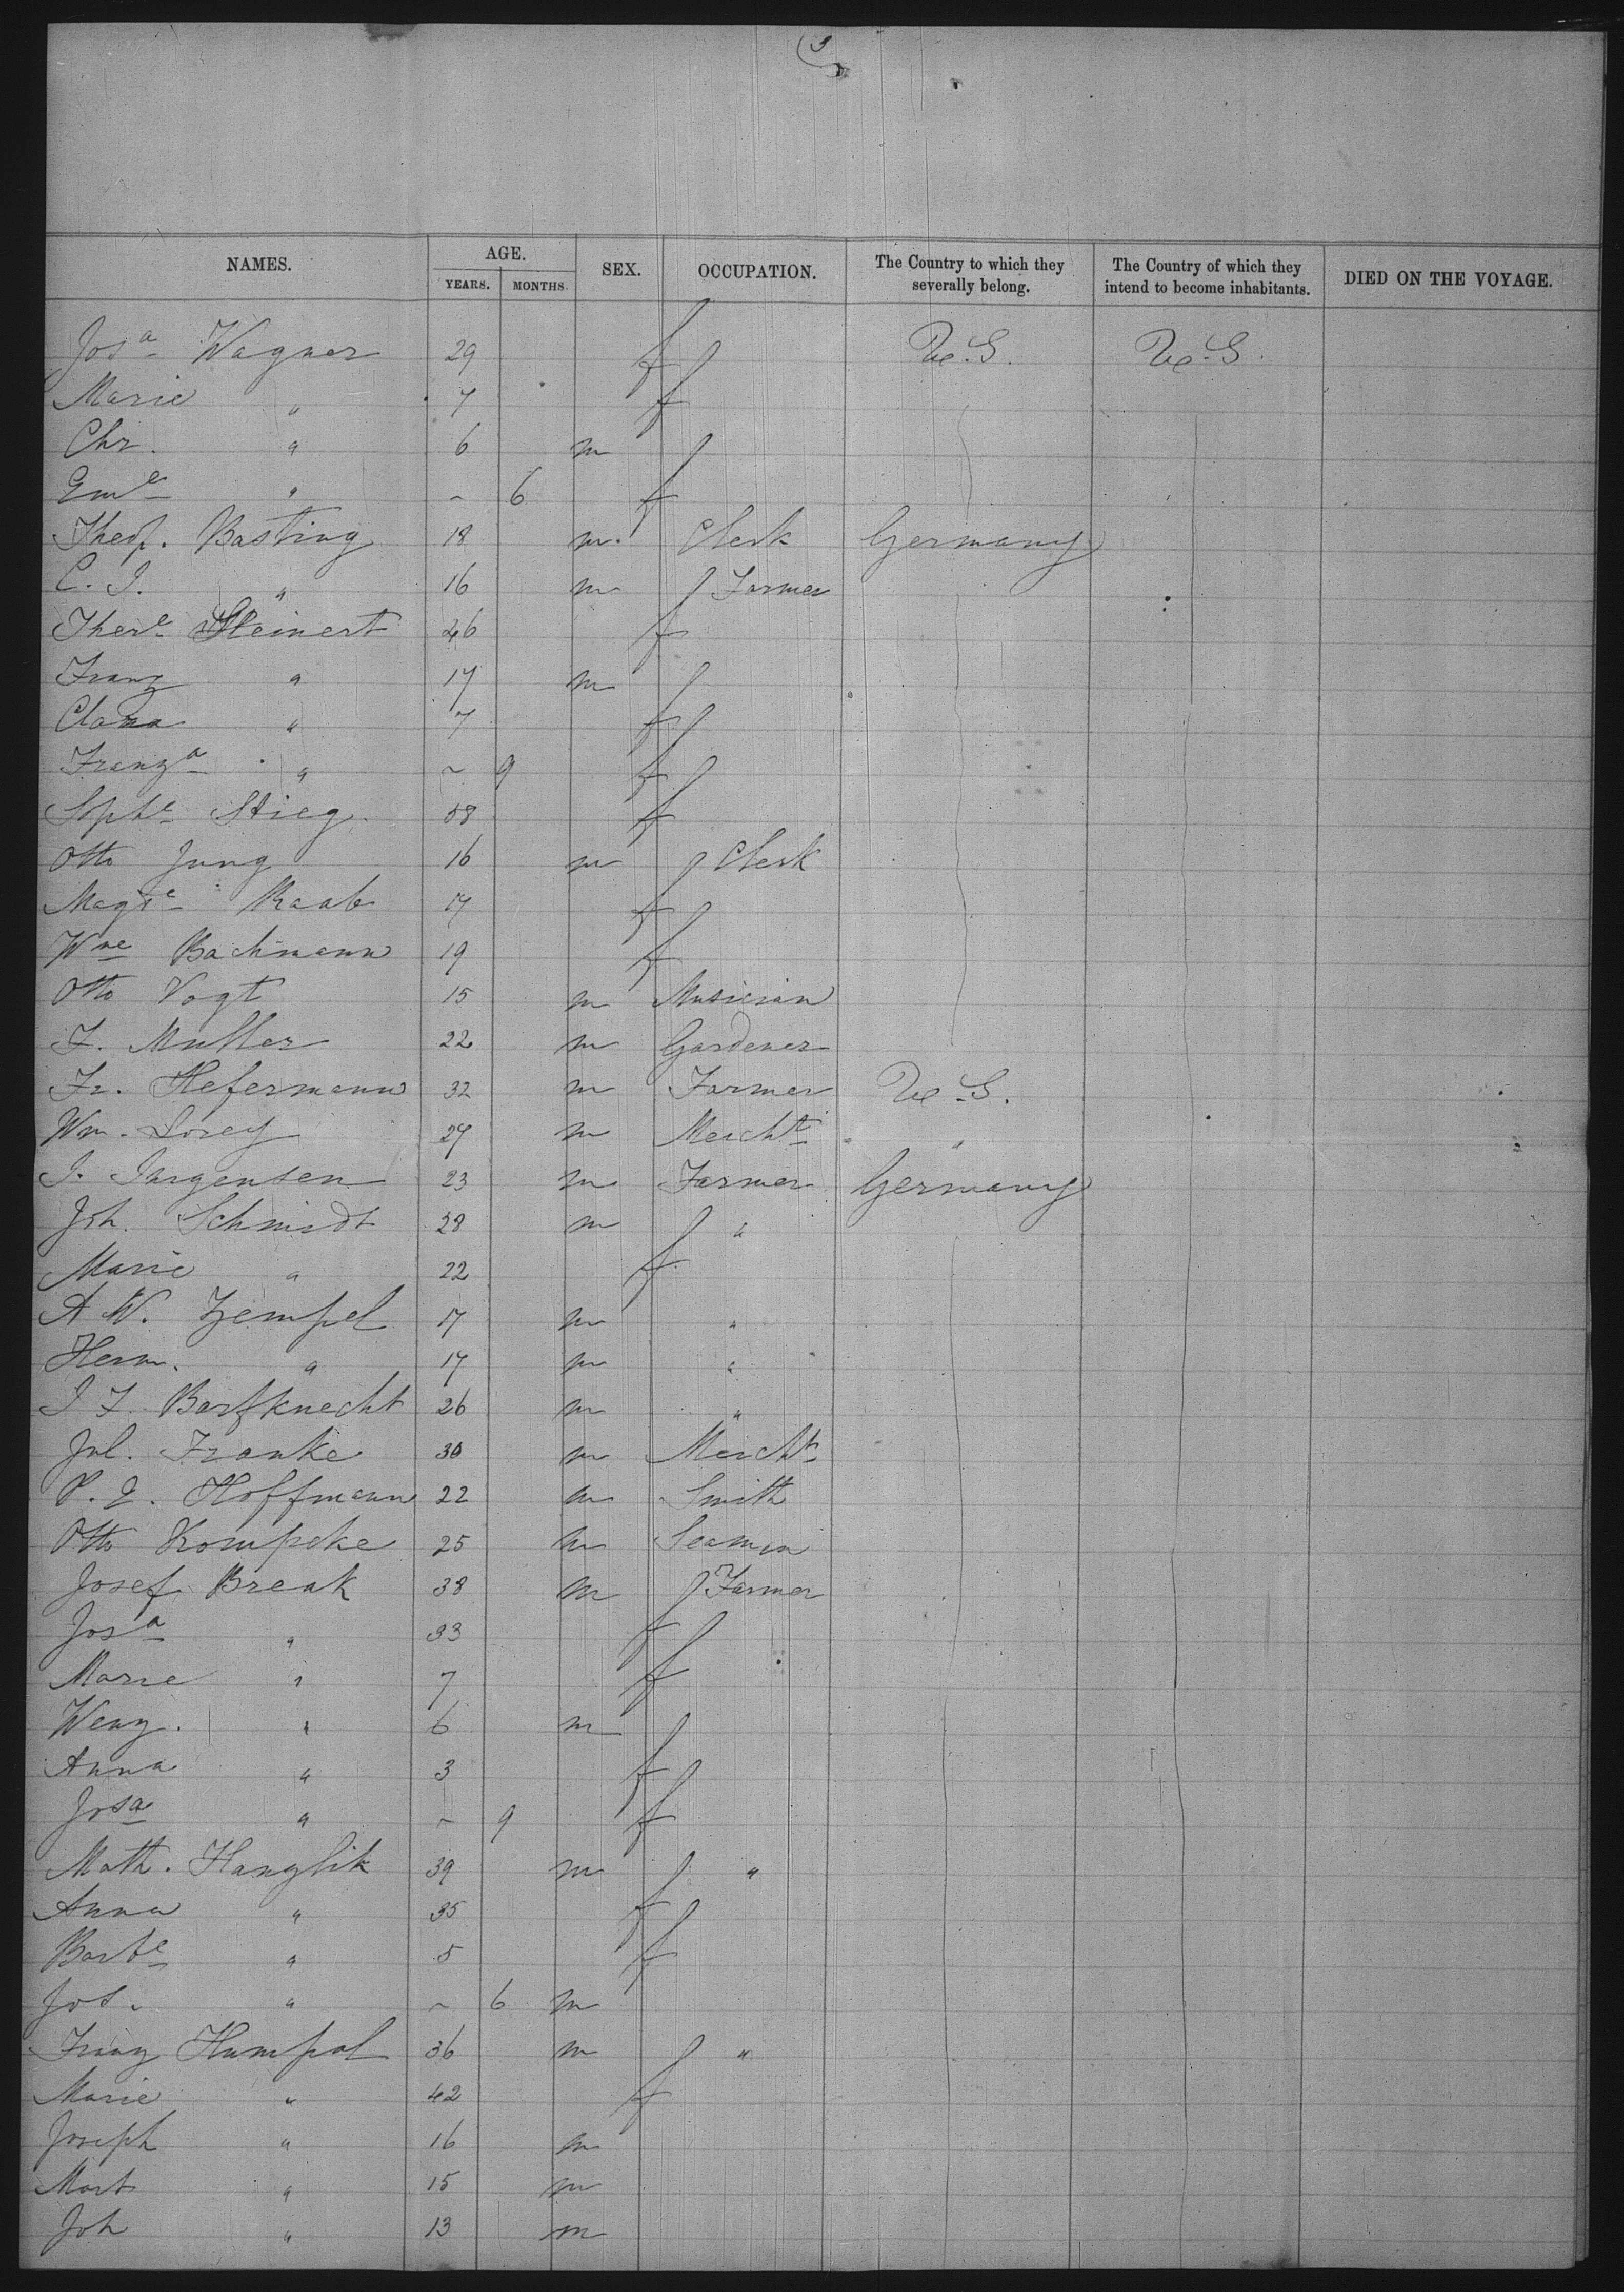 3
NAMES. AGE. YEARS. MONTHS. SEX. OCCUPATION. The Country to which they severally belong. The Country of which they intend to become inhabitants. DIED ON THE VOYAGE.
Josa Wagner 29 f U.S. U.S.
Marie " 7 f
Chr. " 6 m
Eme " ~ 6 f
Theop. Basting 18 m. Clerk Germany
C. J. " 16 m Farmer
There Steinert 26 f
Franz " 17 m
Clara " 7 f
Franza " ~ 9 f
Sophe Stieg 58 f
Otto Jung 16 m Clerk
Magde Raab 17 f
Wme Bachmann 19 f
Otto Vogt 15 m Musician
F. Muller 22 m Gardener
Fr. Hefermann 32 m Farmer U.S.
Wm. Lorey 27 m Mercht "
J. Jurgensen 23 m Farmer Germany
Joh. Schmidt 28 m "
Marie " 22 f
A W. Zempel 17 m "
Herm. " 17 m "
J F. Barfknecht 26 m "
Jul. Franke 30 m Mercht
P. J. Hoffmann 22 m Smith
Otto Kompcke 25 m Seaman
Josef Break 38 m Farmer
Josa " 33 f
Marie " 7 f
Wenz. " 6 m
Anna " 3 f
Josa " ~ 9 f
Math. Hanzlik 39 m "
Anna " 35 f
Barbe " 5 f
Jos. " ~ 6 m
Franz Humpal 36 m "
Marie " 42 f
Joseph " 16 m
Mart " 15 m
Joh " 13 m